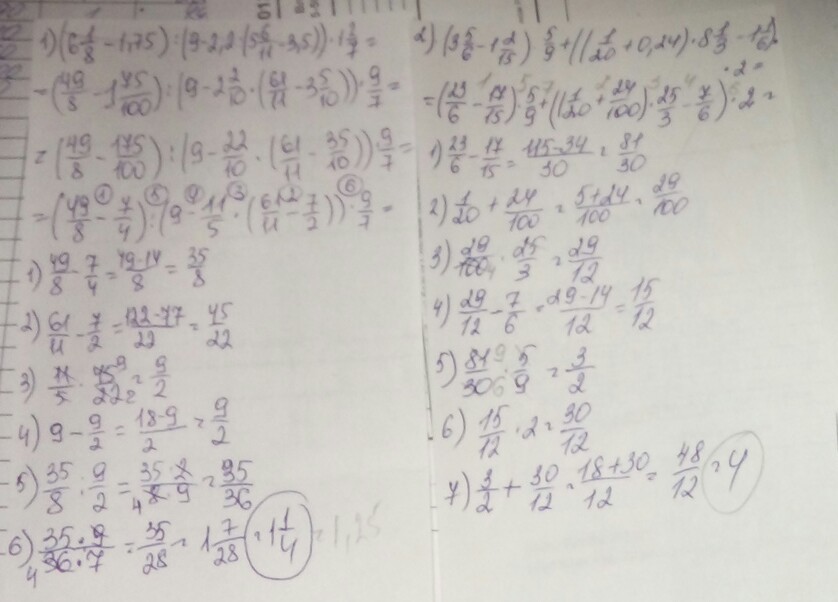 1) (6 1/8 - 1,75) : (9 - 2,2 · (5 6/11 - 3,5)) · 1 2/7 =
= (49/8 - 1 75/100) : (9 - 2 2/10 · (61/11 - 3 5/10)) · 9/7 =
= (49/8 - 175/100) : (9 - 22/10 · (61/11 - 35/10)) · 9/7 =
= (49/8 - 7/4) : (9 - 11/5 · (61/11 - 7/2)) · 9/7 =
1) 49/8 - 7/4 = 49-14/8 = 35/8
2) 61/11 - 7/2 = 122-77/22 = 45/22
3) 11/5 · 45/22 = 9/2
4) 9 - 9/2 = 18-9/2 = 9/2
5) 35/8 : 9/2 = 35·2/8·9 = 35/36
6) 35·9/36·7 = 35/28 = 1 7/28 = 1 1/4 = 1,25
2) (3 5/6 - 1 2/15) · 5/9 + ((1/20 + 0,24) · 8 1/3 - 1 1/6) ·
· 2 =
= (23/6 - 17/15) · 5/9 + ((1/20 + 24/100) · 25/3 - 7/6) · 2 =
1) 23/6 - 17/15 = 115-34/30 = 81/30
2) 1/20 + 24/100 = 5+24/100 = 29/100
3) 29/100 · 25/3 = 29/12
4) 29/12 - 7/6 = 29-14/12 = 15/12
5) 81/30 · 5/9 = 3/2
6) 15/12 · 2 = 30/12
7) 3/2 + 30/12 = 18+30/12 = 48/12 = 4